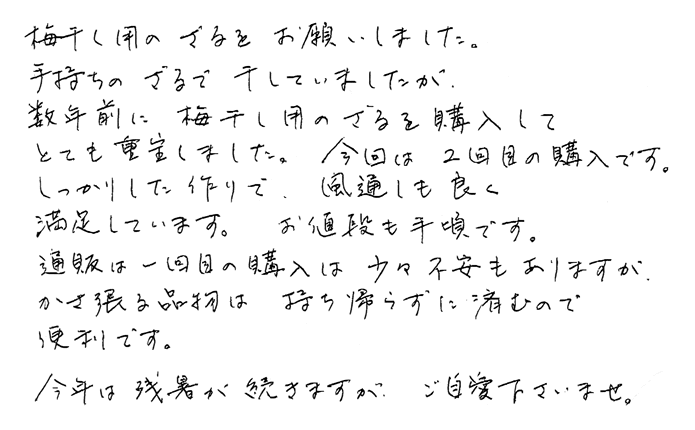 梅干し用の ざるを お願いしました。
手持ちの ざるで 干していましたが、
数年前に 梅干し用の ざるを 購入して
とても 重宝しました。 今回は 2回目の 購入です。
しっかりした 作りで、 風通しも 良く
満足しています。 お値段も 手頃です。
通販は 一回目の 購入は 少々 不安も ありますが、
かさ張る 品物は 持ち帰らずに 済むので
便利です。
今年は 残暑が 続きますが、 ご自愛下さいませ。